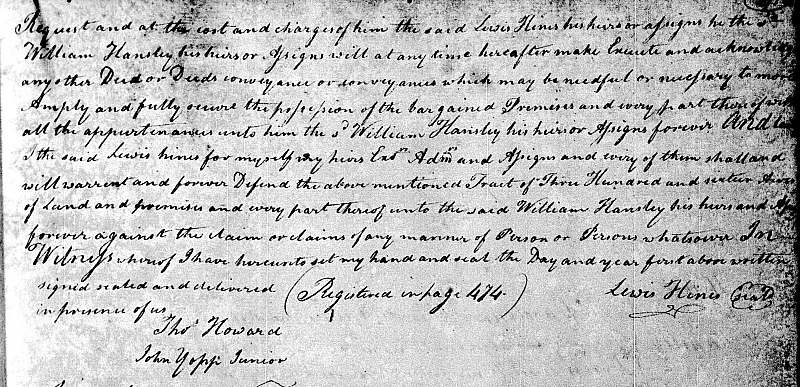 Request and at the cost and charges of him the said Lewis Hines his heirs or assigns he the sd
William Hansley his heirs or Assigns will at any time hereafter make Execute and acknowledge
any other Deed or Deeds conveyance or conveyances which may be needful or necessary to more
Amply and fully secure the possession of the bargained Premises and every part thereof with
all the appurtenances unto him the sd William Hansley his heirs or Assigns forever And
I the said Lewis hines for myself my heirs Exrs Admrs and Assigns and every of them shall and
will warrent and forever Defend the above mentioned Tract of Three Hundred and sixteen Acres
of Land and premises and every part thereof unto the said William Hansley his heirs and
forever against the claim or claims of any manner of Person or Persons whatsoever In
Witness whereof I have hereunto set my hand and seal the Day and year first above written
signed sealed and delivered (Registered in page 474.) Lewis Hines Seal
in presence of us
Thos Howard
John Yopp Junior